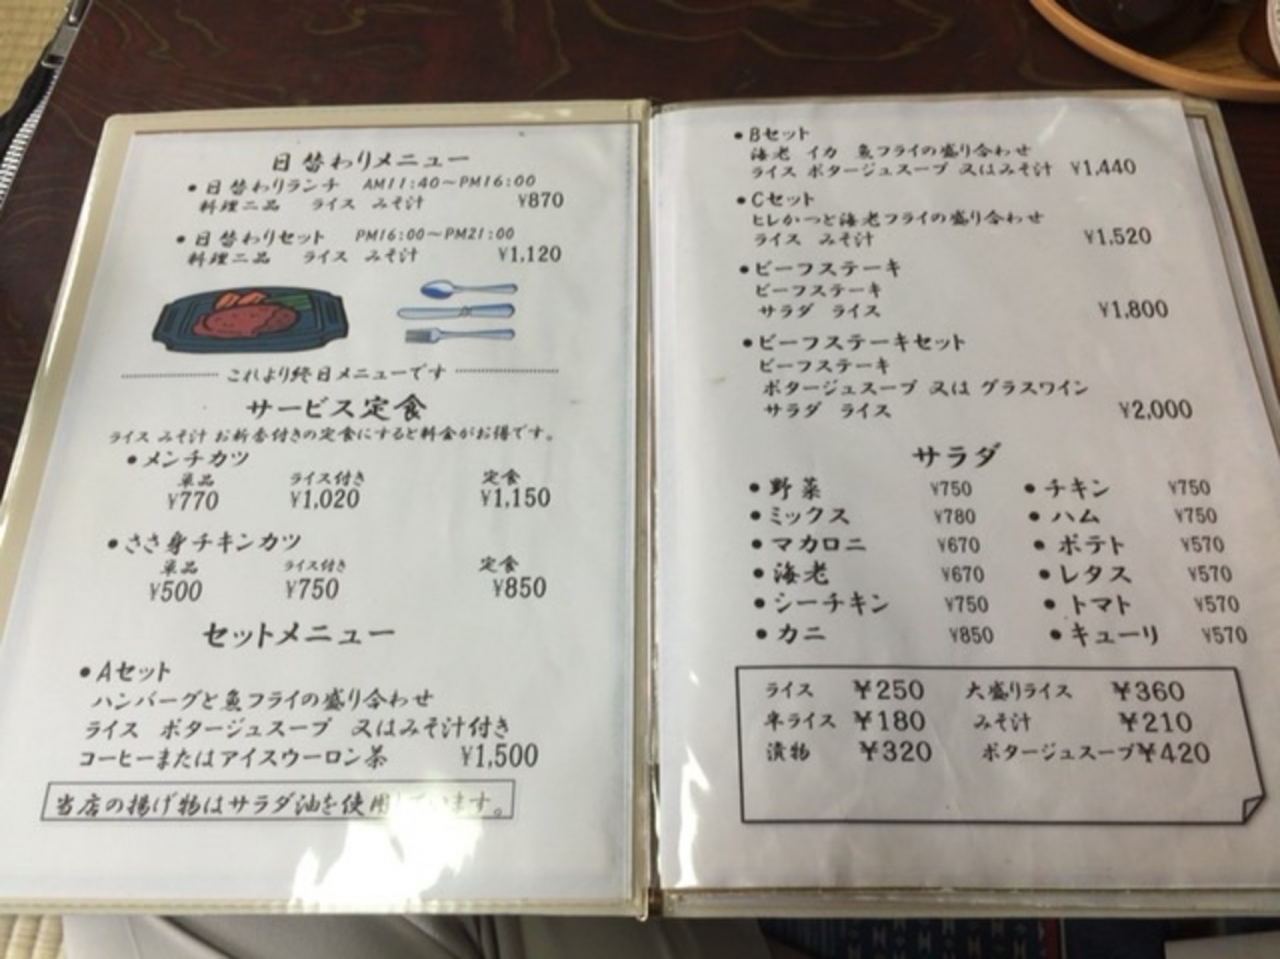 日替わりメニュー
● 日替わりランチ AM11:40～PM16:00
料理二品 ライス みそ汁 ¥870
● 日替わりセット PM16:00～PM21:00
料理二品 ライス みそ汁 ¥1,120
これより終日メニューです
サービス定食
ライス みそ汁 お新香付きの定食にすると料金がお得です。
● メンチカツ
単品 ライス付き 定食
¥770 ¥1,020 ¥1,150
● ささ身チキンカツ
単品 ライス付き 定食
¥500 ¥750 ¥850
セットメニュー
● Aセット
ハンバーグと魚フライの盛り合わせ
ライス ポタージュスープ 又はみそ汁付き
コーヒーまたはアイスウーロン茶 ¥1,500
当店の揚げ物はサラダ油を使用しています。
● Bセット
海老 イカ 魚フライの盛り合わせ
ライス ポタージュスープ 又はみそ汁 ¥1,440
● Cセット
ヒレかつと海老フライの盛り合わせ
ライス みそ汁 ¥1,520
● ビーフステーキ
ビーフステーキ
サラダ ライス ¥1,800
● ビーフステーキセット
ビーフステーキ
ポタージュスープ 又は グラスワイン
サラダ ライス ¥2,000
サラダ
● 野菜 ¥750 ● チキン ¥750
● ミックス ¥780 ● ハム ¥750
● マカロニ ¥670 ● ポテト ¥570
● 海老 ¥670 ● レタス ¥570
● シーチキン ¥750 ● トマト ¥570
● カニ ¥850 ● キューリ ¥570
ライス ¥250 大盛りライス ¥360
半ライス ¥180 みそ汁 ¥210
漬物 ¥320 ポタージュスープ¥420